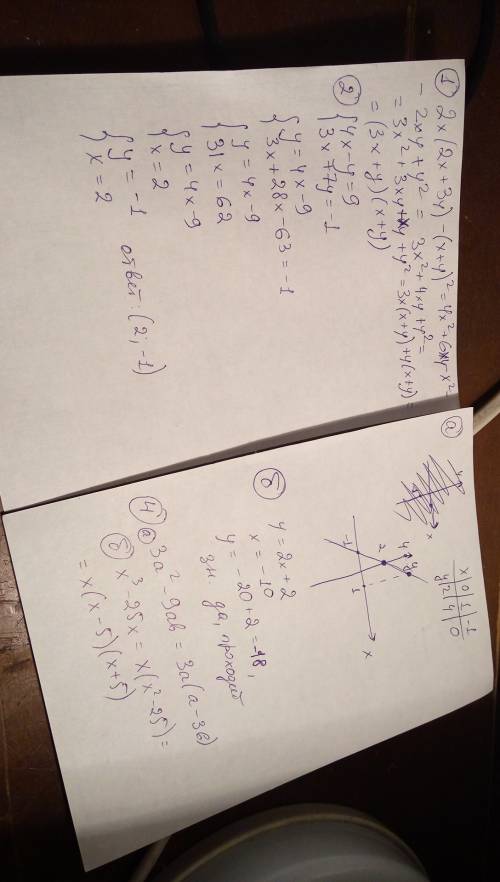 ① 2x(2x+3y)-(x+y)²=4x²+6xy-x²-
-2xy+y²= 3x²+4xy+y²=
=3x²+3xy+xy+y²=3x(x+y)+y(x+y)=
=(3x+y)(x+y)
② {4x-y=9
{3x+7y=-1
{y=4x-9
{3x+28x-63=-1
{y=4x-9
{31x=62
{y=4x-9
{x=2
{y=-1
{x=2
ответ: (2; -1)
а
x|0|1|-1
y|2|4|0
y
4
2
-1
1
x
б y=2x+2
x=-10
y=-20+2=-18,
зн да, проходит
④ а 3a²-9ab=3a(a-3b)
б x³-25x=x(x²-25)=
=x(x-5)(x+5)